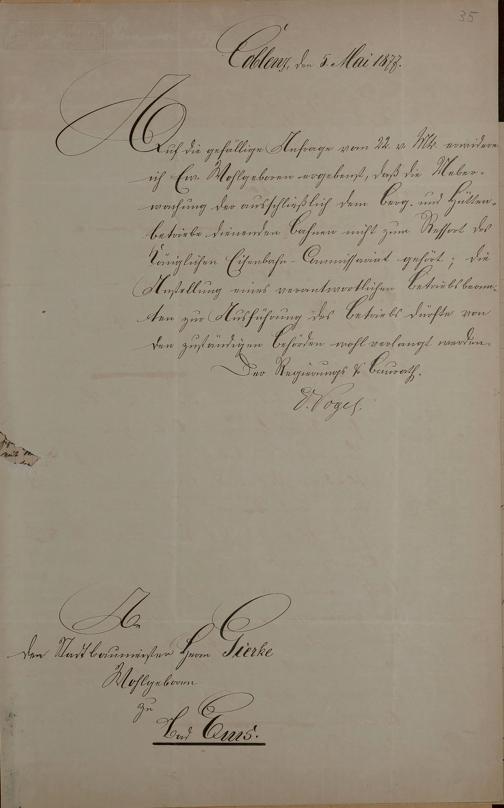 35
Coblenz, den 5. Mai 1877.
Auf die gefällige Anfrage vom 22. v. Mts. erwidere
ich Ew. Wohlgeboren ergebenst, daß die Ueber-
wachung der ausschließlich dem Berg- und Hütten-
betriebe dienenden Bahnen nicht zum Ressort des
Königlichen Eisenbahn-Commissariat gehört; die
Anstellung eines verantwortlichen Betriebsbeam-
ten zur Ausführung des Betriebs dürfte von
den zuständigen Behörden wohl verlangt werden.
Der Regierungs & Baurath.
Vogel.
An
den Stadtbaumeister Herrn Gierke
Wohlgeboren
zu
Bad Ems.